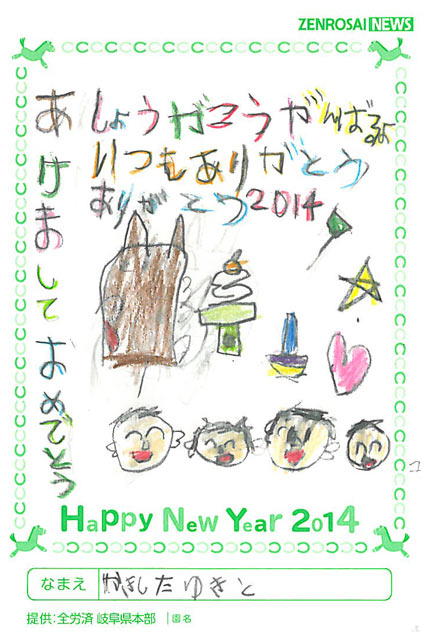 ZENROSAI NEWS
あけましておめてとう
しょうがこうがんばるよ
いつもありがとう
ありがとう2014
Happy New Year 2014
なまえ
かきしたゆきと
提供:全労済 岐阜県本部
園名